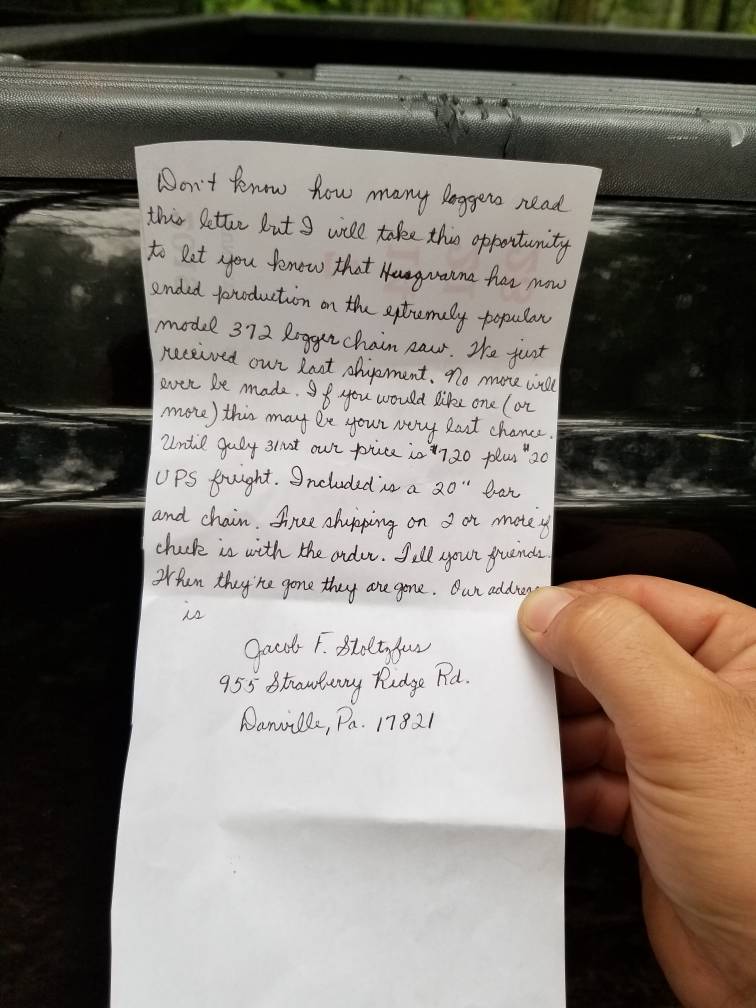 Don't know how many loggers read
this letter but I will take this opportunity
to let you know that Husqvarna has now
ended production on the extremely popular
model 372 logger chain saw. We just
received our last shipment. No more will
ever be made. If you would like one (or
more) this may be your very last chance.
Until July 31rst our price is $720 plus $20
UPS freight. Included is a 20" bar
and chain. Free shipping on 2 or more if
check is with the order. Tell your friends.
When they're gone they are gone. Our address
is
Jacob F. Stoltzfus
955 Strawberry Ridge Rd.
Danville, Pa. 17821